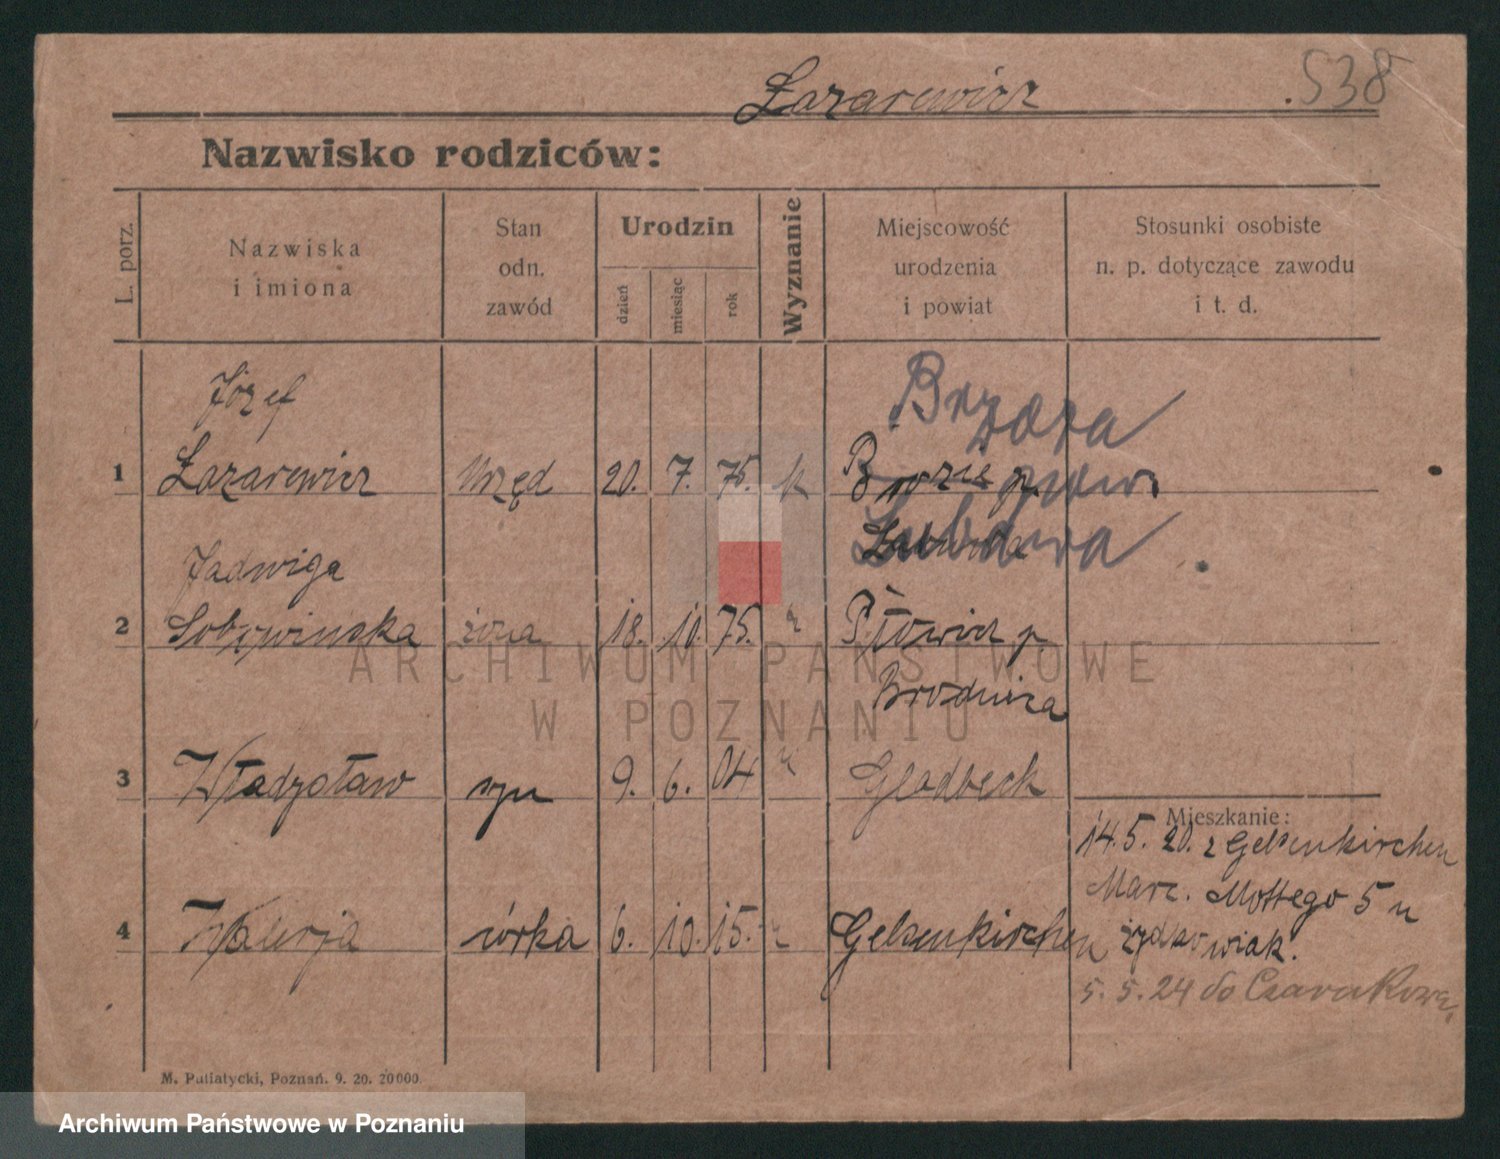 Łazarewicz
538
Nazwisko rodziców:
L. porz.
Nazwiska
i imiona
Stan
odn.
zawód
Urodzin
dzień
miesiąc
rok
Wyznanie
Miejscowość
urodzenia
i powiat
Stosunki osobiste
n. p. dotyczące zawodu
i t. d.
Józef
Brzoza
1 Łazarewicz Urzęd 20. 7. 75. k Brozie p.
pow.
Lubawa
Jadwiga
2 Sobowińska żona 18. 10. 75. p.
Brodnica
3 Władysław syn 9. 6. 04 Gladbeck
Mieszkanie:
14. 5. 20. z Gelsenkirchen
Marc. Mottego 5 u
4 Walerja córka 6. 10. 15. Gelsenkirchen
5. 5. 24 do
ARCHIWUM PAŃSTWOWE
W POZNANIU
M. Putiatycki, Poznań. 9. 20. 20000.
Archiwum Państwowe w Poznaniu